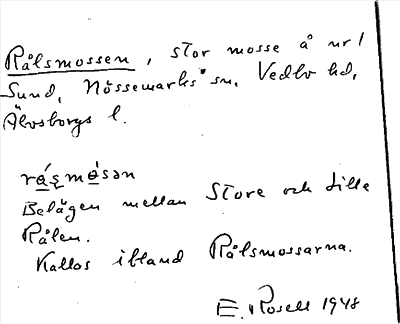 Rålsmossen, stor mosse å nr 1
Sund, Nössemarks sn, Vedbo hd,
Älvsborgs l.
Belägen mellan Store och Lille
Rålen.
Kallas ibland Rålsmossarna.
E. Rosell 1948